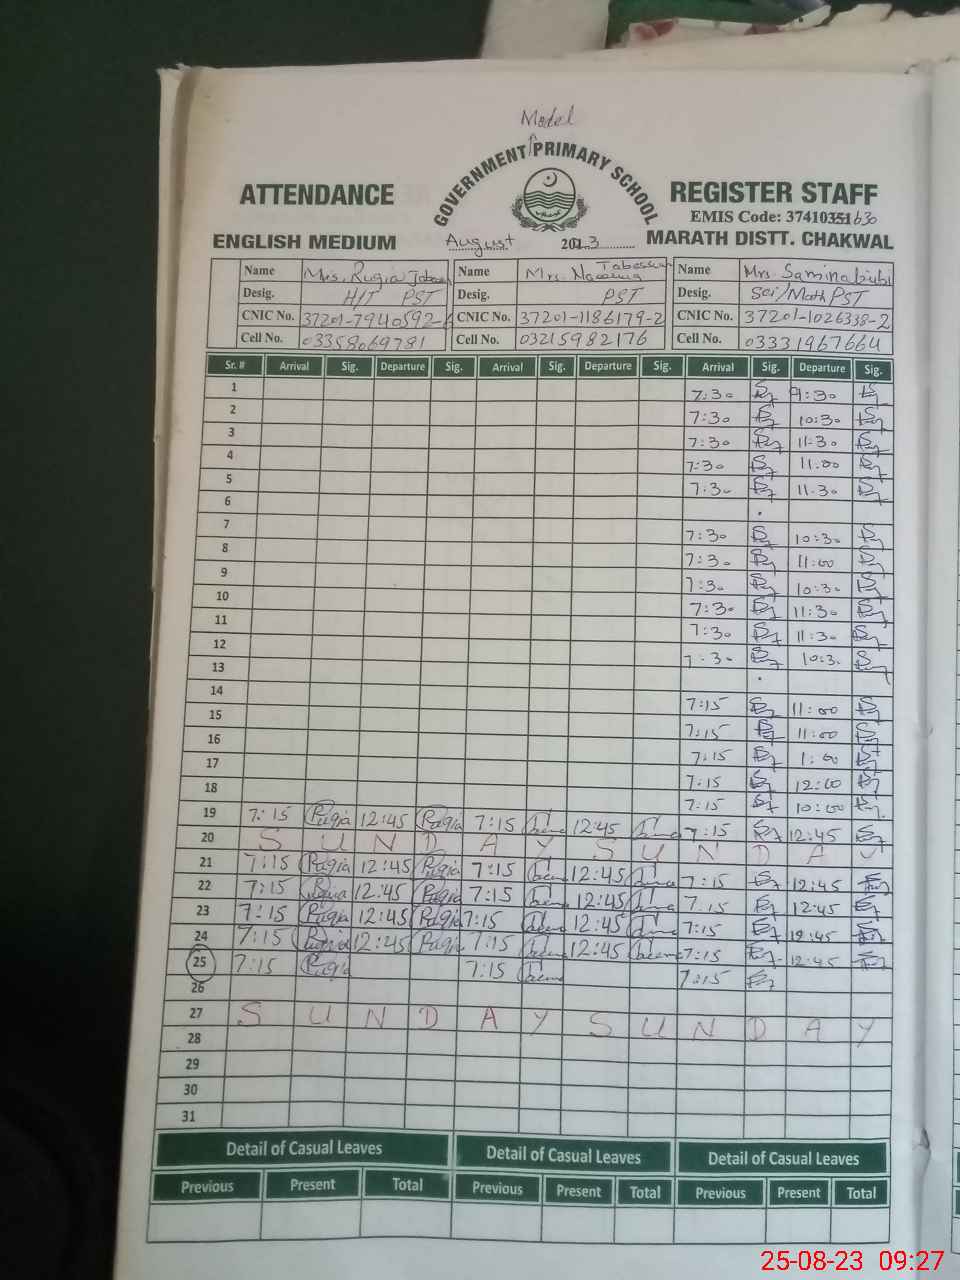 Model
GOVERNMENT PRIMARY SCHOOL
ATTENDANCE REGISTER STAFF
EMIS Code: 37410351630
ENGLISH MEDIUM August 2023 MARATH DISTT. CHAKWAL
Name Mrs. Ruqia Name Mrs. Tabassum Name Mrs. Samina bibi
Desig. H/T PST Desig. PST Desig. Sci/Math PST
CNIC No. 37201-7940592- CNIC No. 37201-1186179-2 CNIC No. 37201-1026338-2
Cell No. 03358069781 Cell No. 03215982176 Cell No. 03331967664
Sr. # Arrival Sig. Departure Sig. Arrival Sig. Departure Sig. Arrival Sig. Departure Sig.
1 7:30 9:30
2 7:30 10:30
3 7:30 11:30
4 7:30 11.00
5 7:30 11.30
6
7 7:30 10:30
8 7:30 11:00
9 7:30 10:30
10 7:30 11:30
11 7:30 11:30
12 7:30 10:30
13
14 7:15 11:00
15 7:15 11:00
16 7:15 1:00
17 7:15 12:00
18 7:15 10:00
19 7:15 Ruqia 12:45 Ruqia 7:15 12:45 7:15 12:45
20 S U N D A Y S U N D A Y
21 7:15 Ruqia 12:45 Ruqia 7:15 12:45 7:15 12:45
22 7:15 Ruqia 12:45 Ruqia 7:15 12:45 7.15 12:45
23 7:15 Ruqia 12:45 Ruqia 7:15 12:45 7:15 12:45
24 7:15 Ruqia 12:45 Ruqia 7:15 12:45 7:15 12:45
25 7:15 Ruqia 7:15 7:15
26
27 S U N D A Y S U N D A Y
28
29
30
31
Detail of Casual Leaves Detail of Casual Leaves Detail of Casual Leaves
Previous Present Total Previous Present Total Previous Present Total
25-08-23 09:27